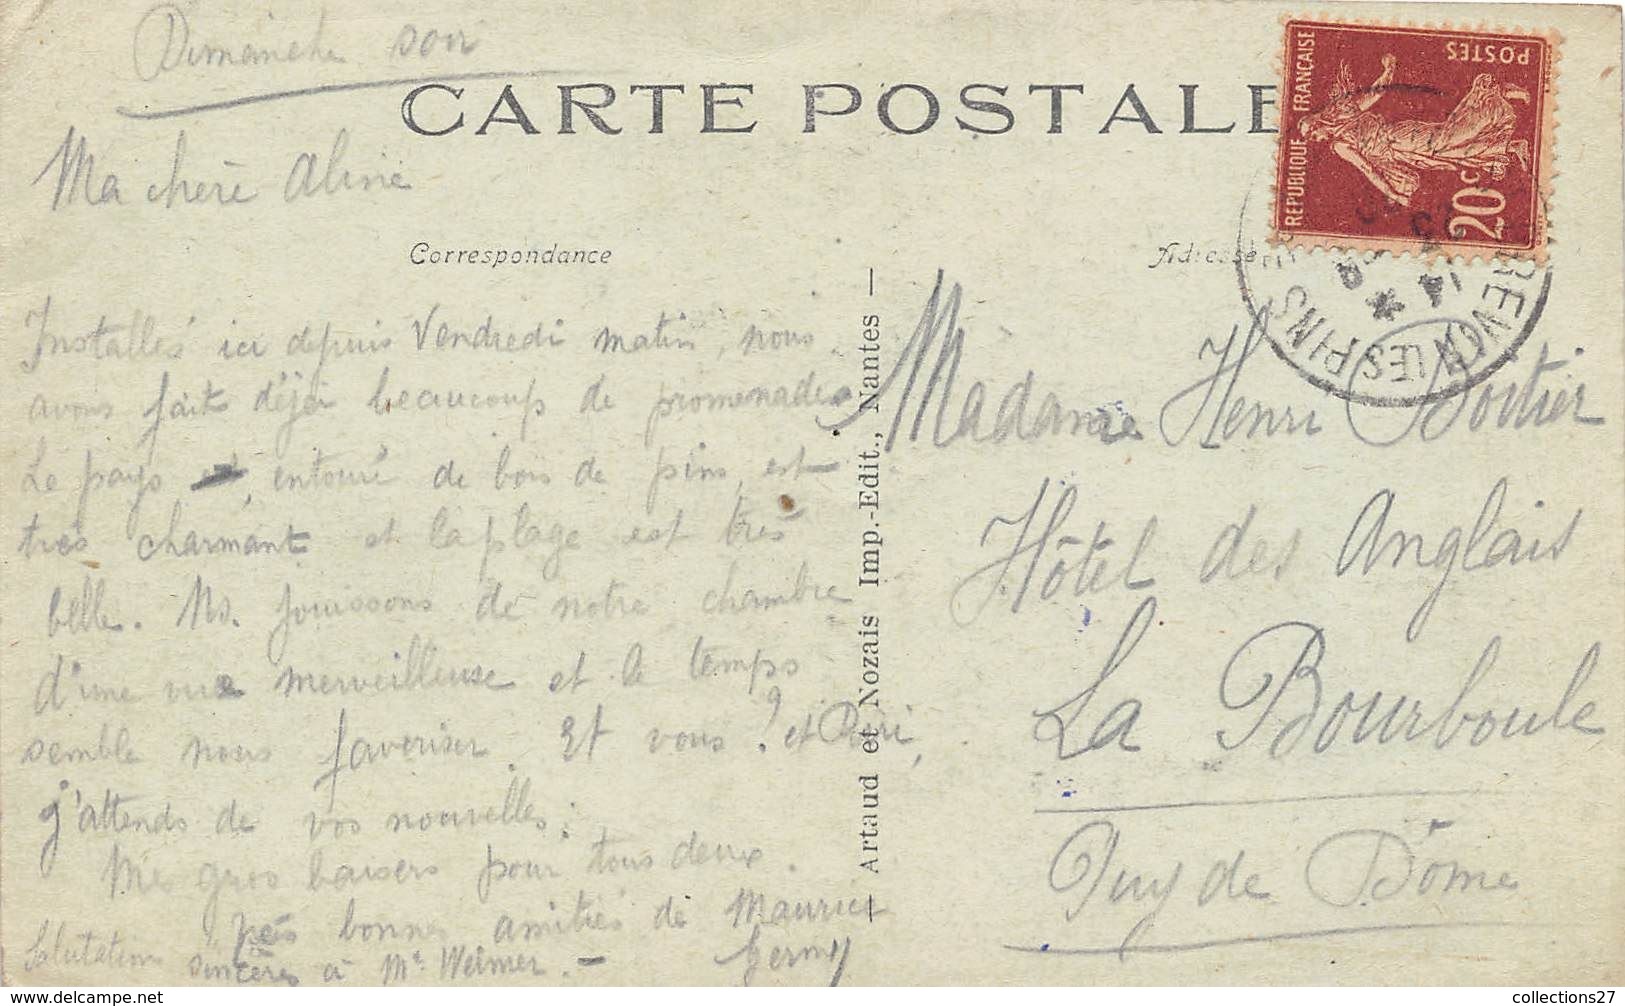 Dimanche soir
CARTE POSTALE
REPUBLIQUE FRANÇAISE
POSTES
20c
Ma chère Aline
Correspondance
Adresse
LES PINS
Installés ici depuis Vendredi matin, nous
avons fait déjà beaucoup de promenades
Le pays entouré de bois de pins, est
très charmant et la plage est très
belle. Ns. jouissons de notre chambre
d'une vue merveilleuse et le temps
semble nous favoriser. Et vous? et
j'attends de vos nouvelles.
Mes gros baisers pour tous deux.
bonnes amitiés de Maurice
Salutations sincères à Mr Weimer. - Germy
— Artaud et Nozais Imp.-Edit., Nantes —
Madame Henri
Hôtel des Anglais
La Bourboule
Puy de Dôme
collections27